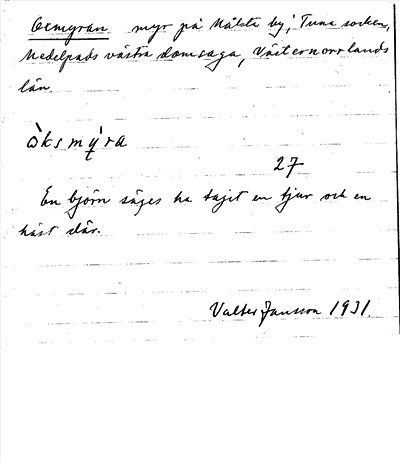 Oxmyran myr på Målsta by, Tuna socken,
Medelpads västra domsaga, Västernorrlands
län.
òksmỳra
27
En björn säges ha tagit en tjur och en
häst där.
Valter Jansson 1931.